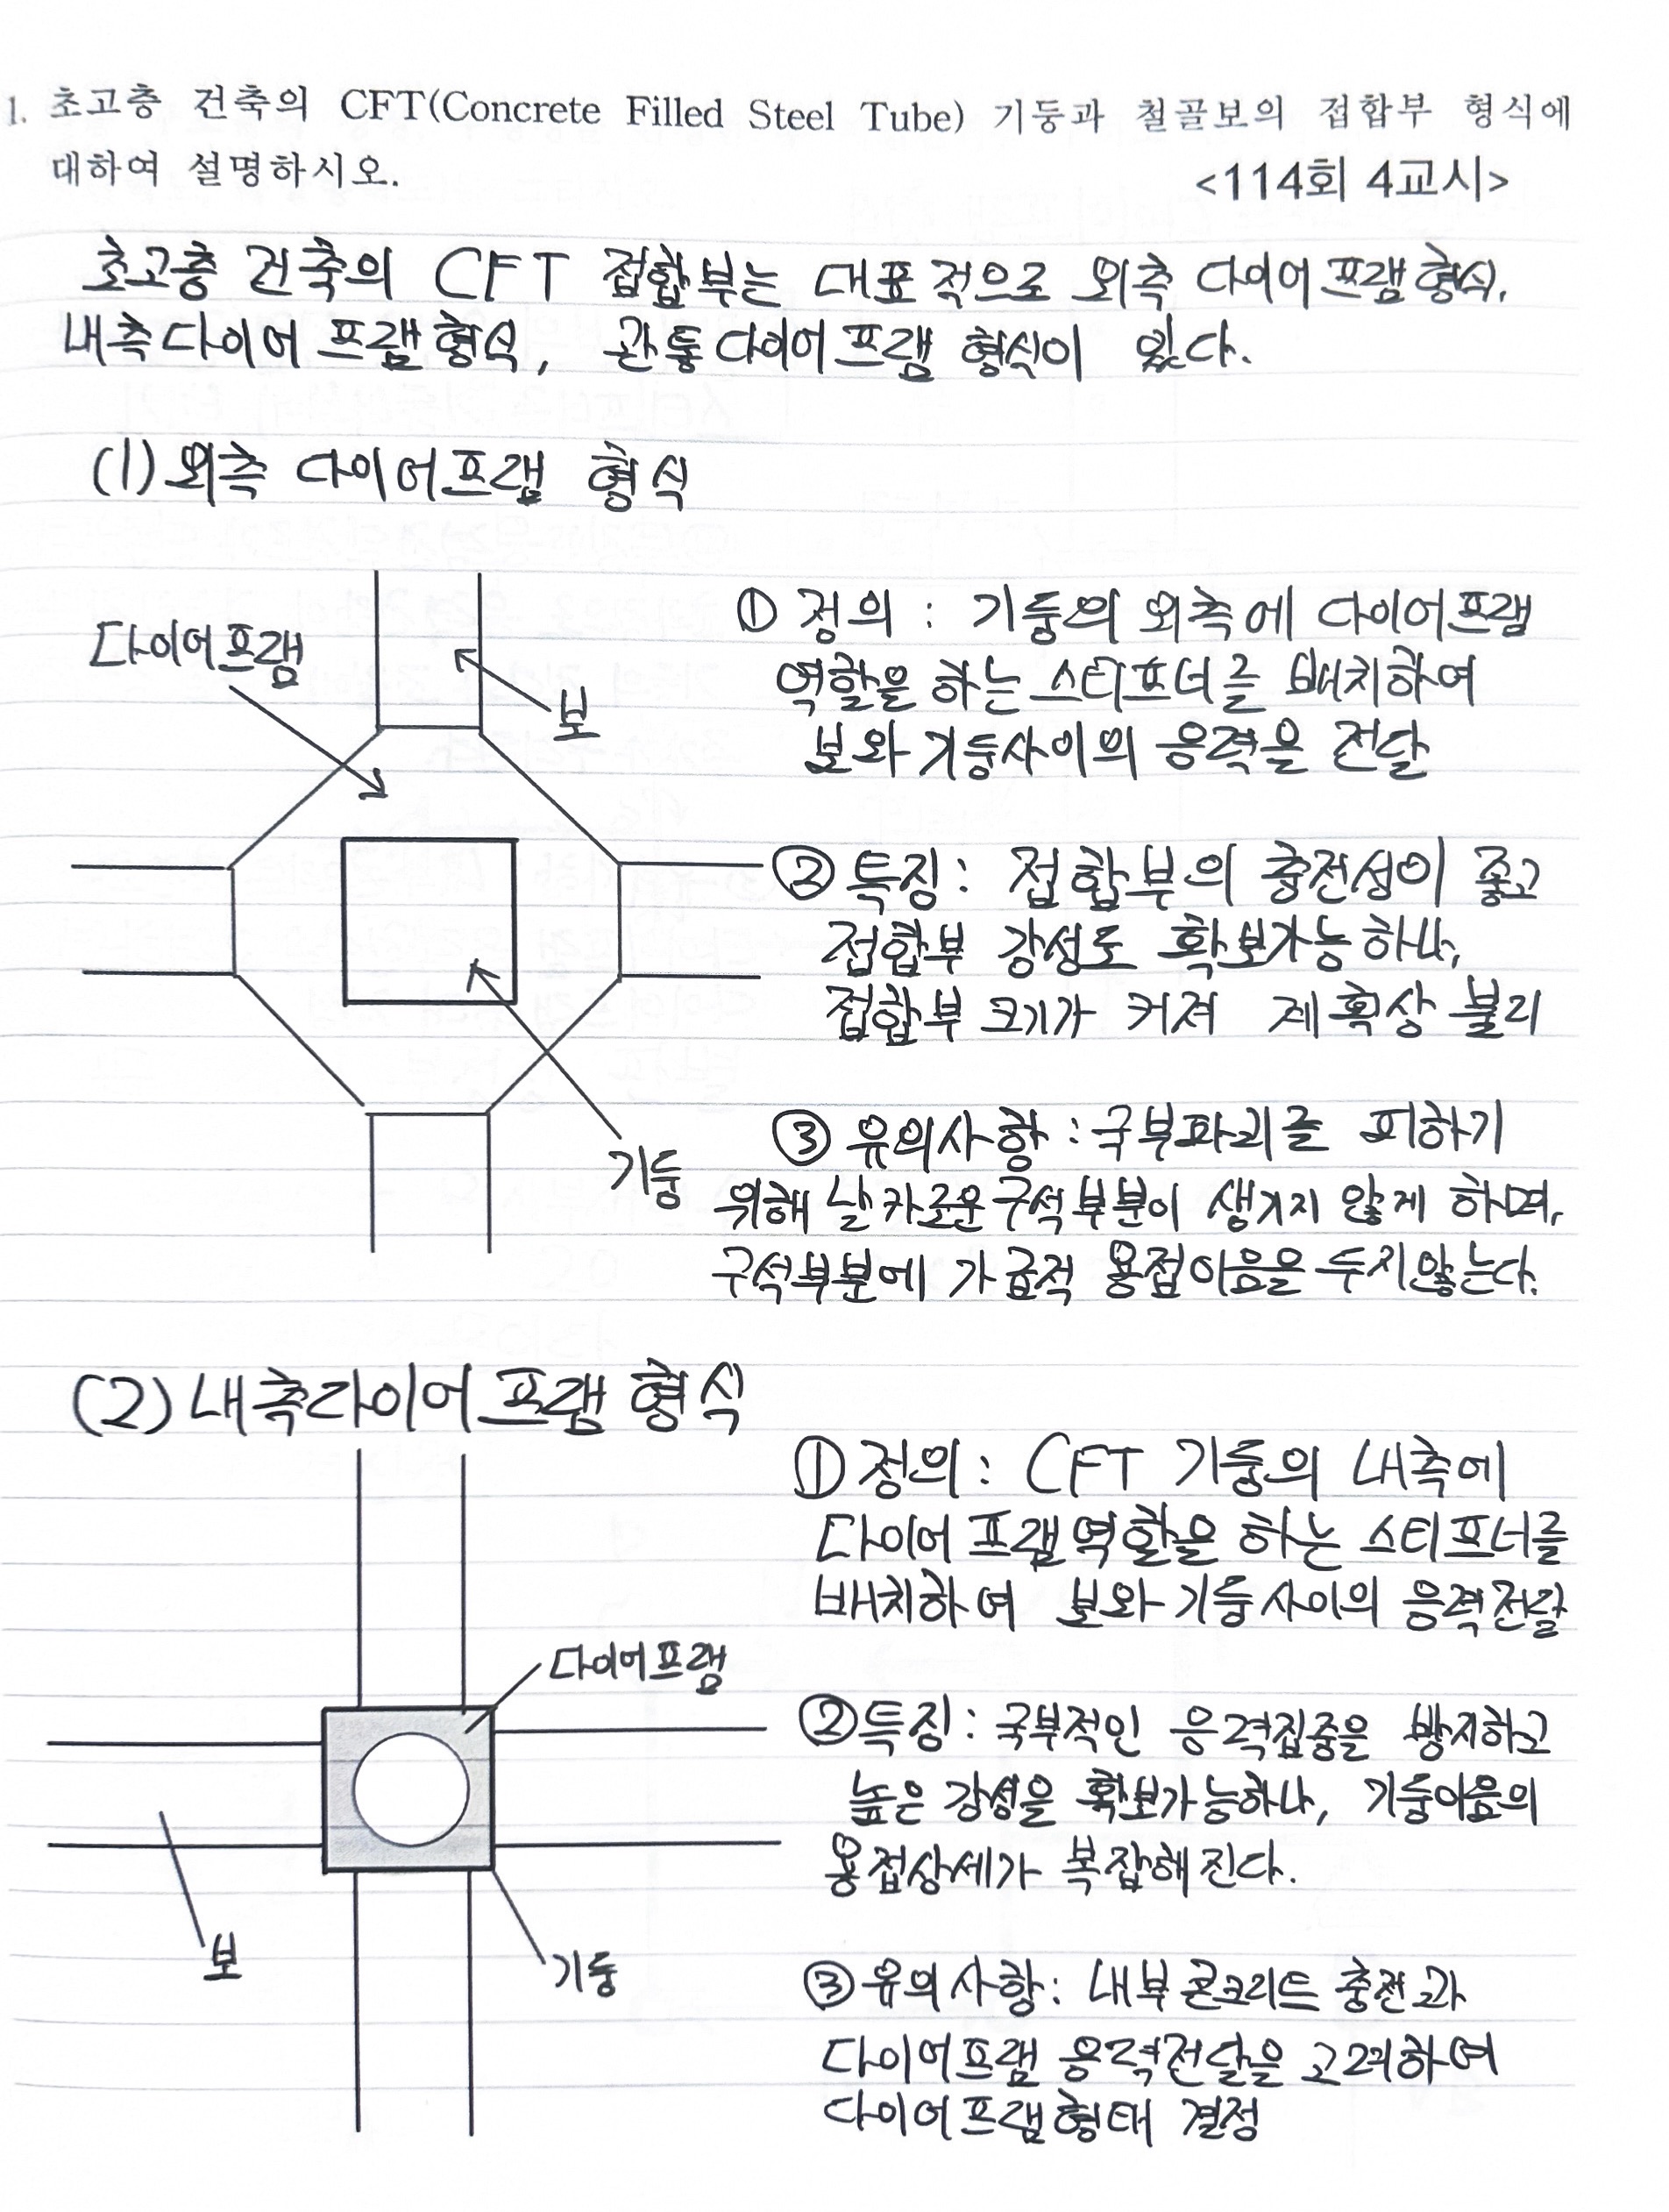 1. 초고층 건축의 CFT(Concrete Filled Steel Tube) 기둥과 철골보의 접합부 형식에
대하여 설명하시오.
<114회 4교시>
초고층 건축의 CFT 접합부는 대표적으로 외측 다이어프램형식,
내측다이어프램형식, 관통다이어프램 형식이 있다.
(1) 외측 다이어프램 형식
다이어프램
보
기둥
① 정의 : 기둥의 외측에 다이어프램
역할을 하는 스티프너를 배치하여
보와 기둥사이의 응력을 전달
② 특징 : 접합부의 충전성이 좋고
접합부 강성도 확보가능하나,
접합부 크기가 커져 계획상 불리
③ 유의사항 : 국부파괴를 피하기
위해 날카로운 구석부분이 생기지 않게 하며,
구석부분에 가급적 용접이음을 두지않는다.
(2) 내측다이어프램 형식
다이어프램
보
기둥
① 정의 : CFT 기둥의 내측에
다이어프램역할을 하는 스티프너를
배치하여 보와 기둥사이의 응력전달
② 특징 : 국부적인 응력집중을 방지하고
높은 강성을 확보가능하나, 기둥이음의
용접상세가 복잡해진다.
③ 유의사항 : 내부콘크리트 충전과
다이어프램 응력전달을 고려하여
다이어프램형태 결정